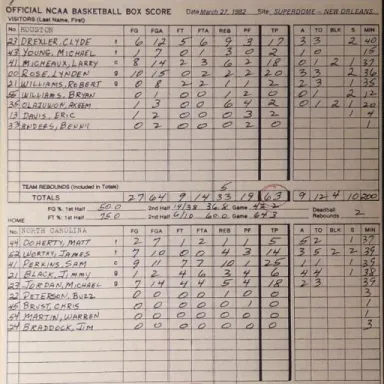 OFFICIAL NCAA BASKETBALL BOX SCORE Date March 27, 1982 Site SUPERDOME - NEW ORLEANS
VISITORS (Last Name, First)
HOUSTON FG FGA FT FTA REB PF TP A TO BLK S MIN
DREXLER, CLYDE f 6 12 5 6 9 3 17 3 3 2 40
43 YOUNG, MICHAEL f 1 7 0 1 3 0 2
41 MICHEAUX, LARRY 8 14 2 3 6 2 18 0 1 2 1 37
00 ROSE, LYNDEN g 10 15 0 2 2 2 20 3 3 2 36
21 WILLIAMS, ROBERT g 0 8 2 2 1 1 2 2 3 35
WILLIAMS, BRYAN 0 1 0 0 1 2 0 0 1 2 12
35 OLAJUWON, AKEEM 1 3 0 0 6 4 2 0 1 2 1 20
13 DAVIS, ERIC 1 2 0 0 0 3 2 4
ANDERS, BENNY 0 2 0 0 0 2 0
TEAM REBOUNDS (Included in Totals) 5
TOTALS 27 64 9 14 33 19 63 9 12 4 10 200
FG % 1st Half 50.0 2nd Half 14/38 36.8 Game 42.2
FT % 1st Half 75.0 2nd Half 6/10 60.0 Game 64.3 Deadball Rebounds 2
HOME
NORTH CAROLINA FG FGA FT FTA REB PF TP A TO BLK S MIN
44 DOHERTY, MATT f 2 7 1 2 1 5 37
52 WORTHY, JAMES f 7 10 0 0 4 3 14 3 5 2 2 39
41 PERKINS, SAM c 9 11 7 7 10 1 25 1 1 39
21 BLACK, JIMMY g 1 2 4 6 3 4 6 4 4 1 38
23 JORDAN, MICHAEL g 7 14 4 4 5 4 18 2 3 39
PETERSON, BUZZ 0 0 0 0 1 0 0
45 BRUST, CHRIS 0 0 0 0 0 1 0
54 MARTIN, WARREN 0 0 0 0 0 0 0
24 BRADDOCK, JIM 0 0 0 0 0 0 0